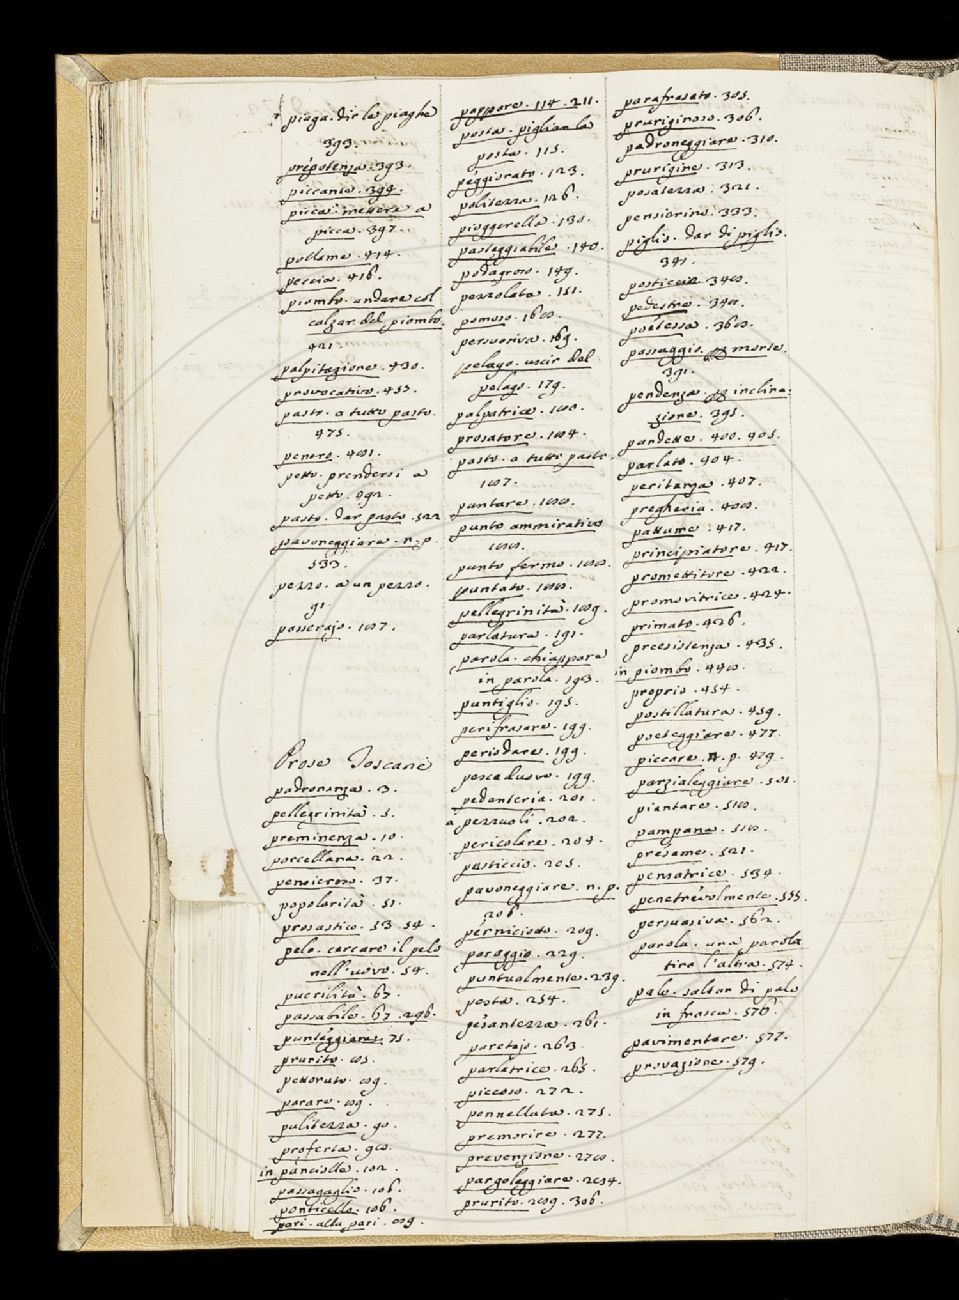 piaga. dir le piaghe
393.
prepotenza. 393.
piccante. 394.
picca. mettere a
picca. 397.
pollame. 414.
peccia. 416.
piombo. andare col
calzar del piombo.
421
palpitazione. 430.
provocativo. 453.
pasto. a tutto pasto.
475.
penero. 481.
petto. prendersi a
petto. 492.
pasto. dar pasto. 522
pavoneggiare. n. p.
533.
pezzo. a un pezzo.
91.
passerajo. 187.
Prose Toscane
padronanza. 3.
pellegrinità. 5.
preminenza. 10.
porcellana. 22.
pensieroso. 37.
popolarità. 51.
prosastico. 53. 54.
pelo. cercare il pelo
nell'uovo. 54.
puerilità. 67.
passabile. 67. 296.
punteggiare. 75.
prurito. 85.
pettoruto. 89.
parare. 89.
pulitezza. 90.
proferta. 98.
in panciolle. 102.
passagaglio. 106.
ponticello. 106.
pari. alla pari. 109.
pappare. 114. 211.
posta. pigliar la
posta. 115.
peggiorato. 123.
politezza. 126.
pioggerella. 130.
passeggiabile. 140.
podagroso. 149.
pezzolata. 151.
pomoso. 168.
persuoriva. 169.
pelago. uscir del
pelago. 179.
palpatrice. 180.
prosatore. 184.
pasto. a tutto pasto.
187.
puntare. 188.
punto ammirativo
188.
punto fermo. 188.
puntato. 188.
pellegrinità. 189.
parlatura. 191.
parola. chiappare
in parola. 193.
puntiglio. 195.
perifrasare. 199.
periodare. 199.
pesceduovo. 199.
pedanteria. 201.
a pezzuoli. 202.
pericolare. 204.
pasticcio. 205.
pavoneggiare. n. p.
206.
perniciosa. 209.
poroggio. 229.
puntualmente. 239.
posta. 254.
pesantezza. 261.
paretajo. 263.
parlatrice. 265.
piccoso. 272.
pennellata. 275.
premorire. 277.
prevenzione. 278.
pargoleggiare. 284.
prurito. 289. 306.
parafrasato. 305.
pruriginoso. 306.
padroneggiare. 310.
prurigine. 313.
posatezza. 321.
pensierino. 333.
piglio. dar di piglio.
341.
posticcia. 348.
pedestre. 348.
poetessa. 368.
passaggio. morte.
391.
pendenza. inclina-
zione. 395.
pandette. 400. 405.
parlato. 404.
peritanza. 407.
pregheria. 408.
pattume. 417.
principiatore. 417.
promettitore. 422.
promovitrice. 424.
primato. 426.
preesistenza. 435.
in piombo. 448.
proprio. 454.
postillatura. 459.
poeteggiare. 477.
piccare. n. p. 479.
parzialeggiare. 501.
piantare. 510.
pampana. 510.
presame. 521.
pensatrice. 534.
penetrevolmente. 555.
persuasiva. 562.
parola. una parola
tira l'altra. 574.
palo. saltar di palo
in frasca. 576.
pavimentare. 577.
provazione. 579.